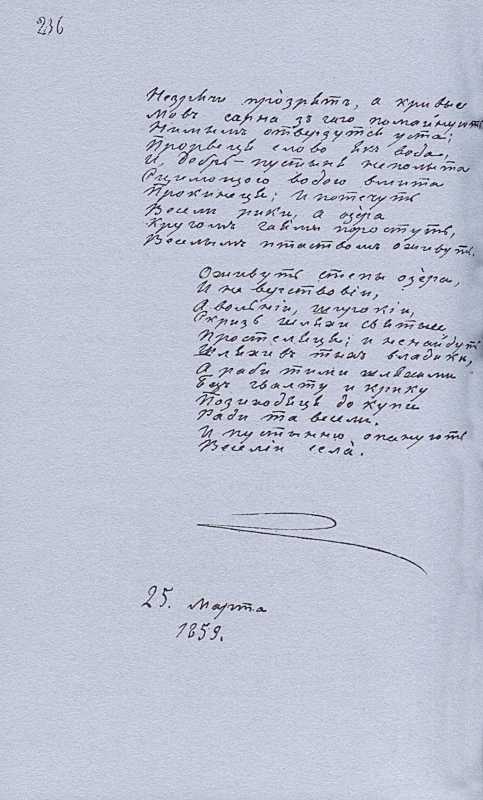 236
Незрячі прозрятъ, а кривые
Мовъ сарна зъ гаю помайнуютъ.
Нимымъ отверзутся уста;
Прорвеця слово якъ вода,
И дебрь-пустыня неполыта
Сцилющою водою вмита
Прокинеця; И потечуть
Весели рики, а озера
Кругомъ гаямы поростуть,
Веселымъ птаствомъ оживутъ.
Оживуть степы озера,
И не верствовіи,
А вольніи, шырокіи,
Скризь шляхи святые
Простелюця; и ненайдуть
Шляхивъ тыхъ владыки,
А раби тыми шляхамы
Безъ гвалту и крику
Позиходяця до купы
Ради та весели.
И пустынню опануютъ
Веселіи села.
25. Марта
1859.